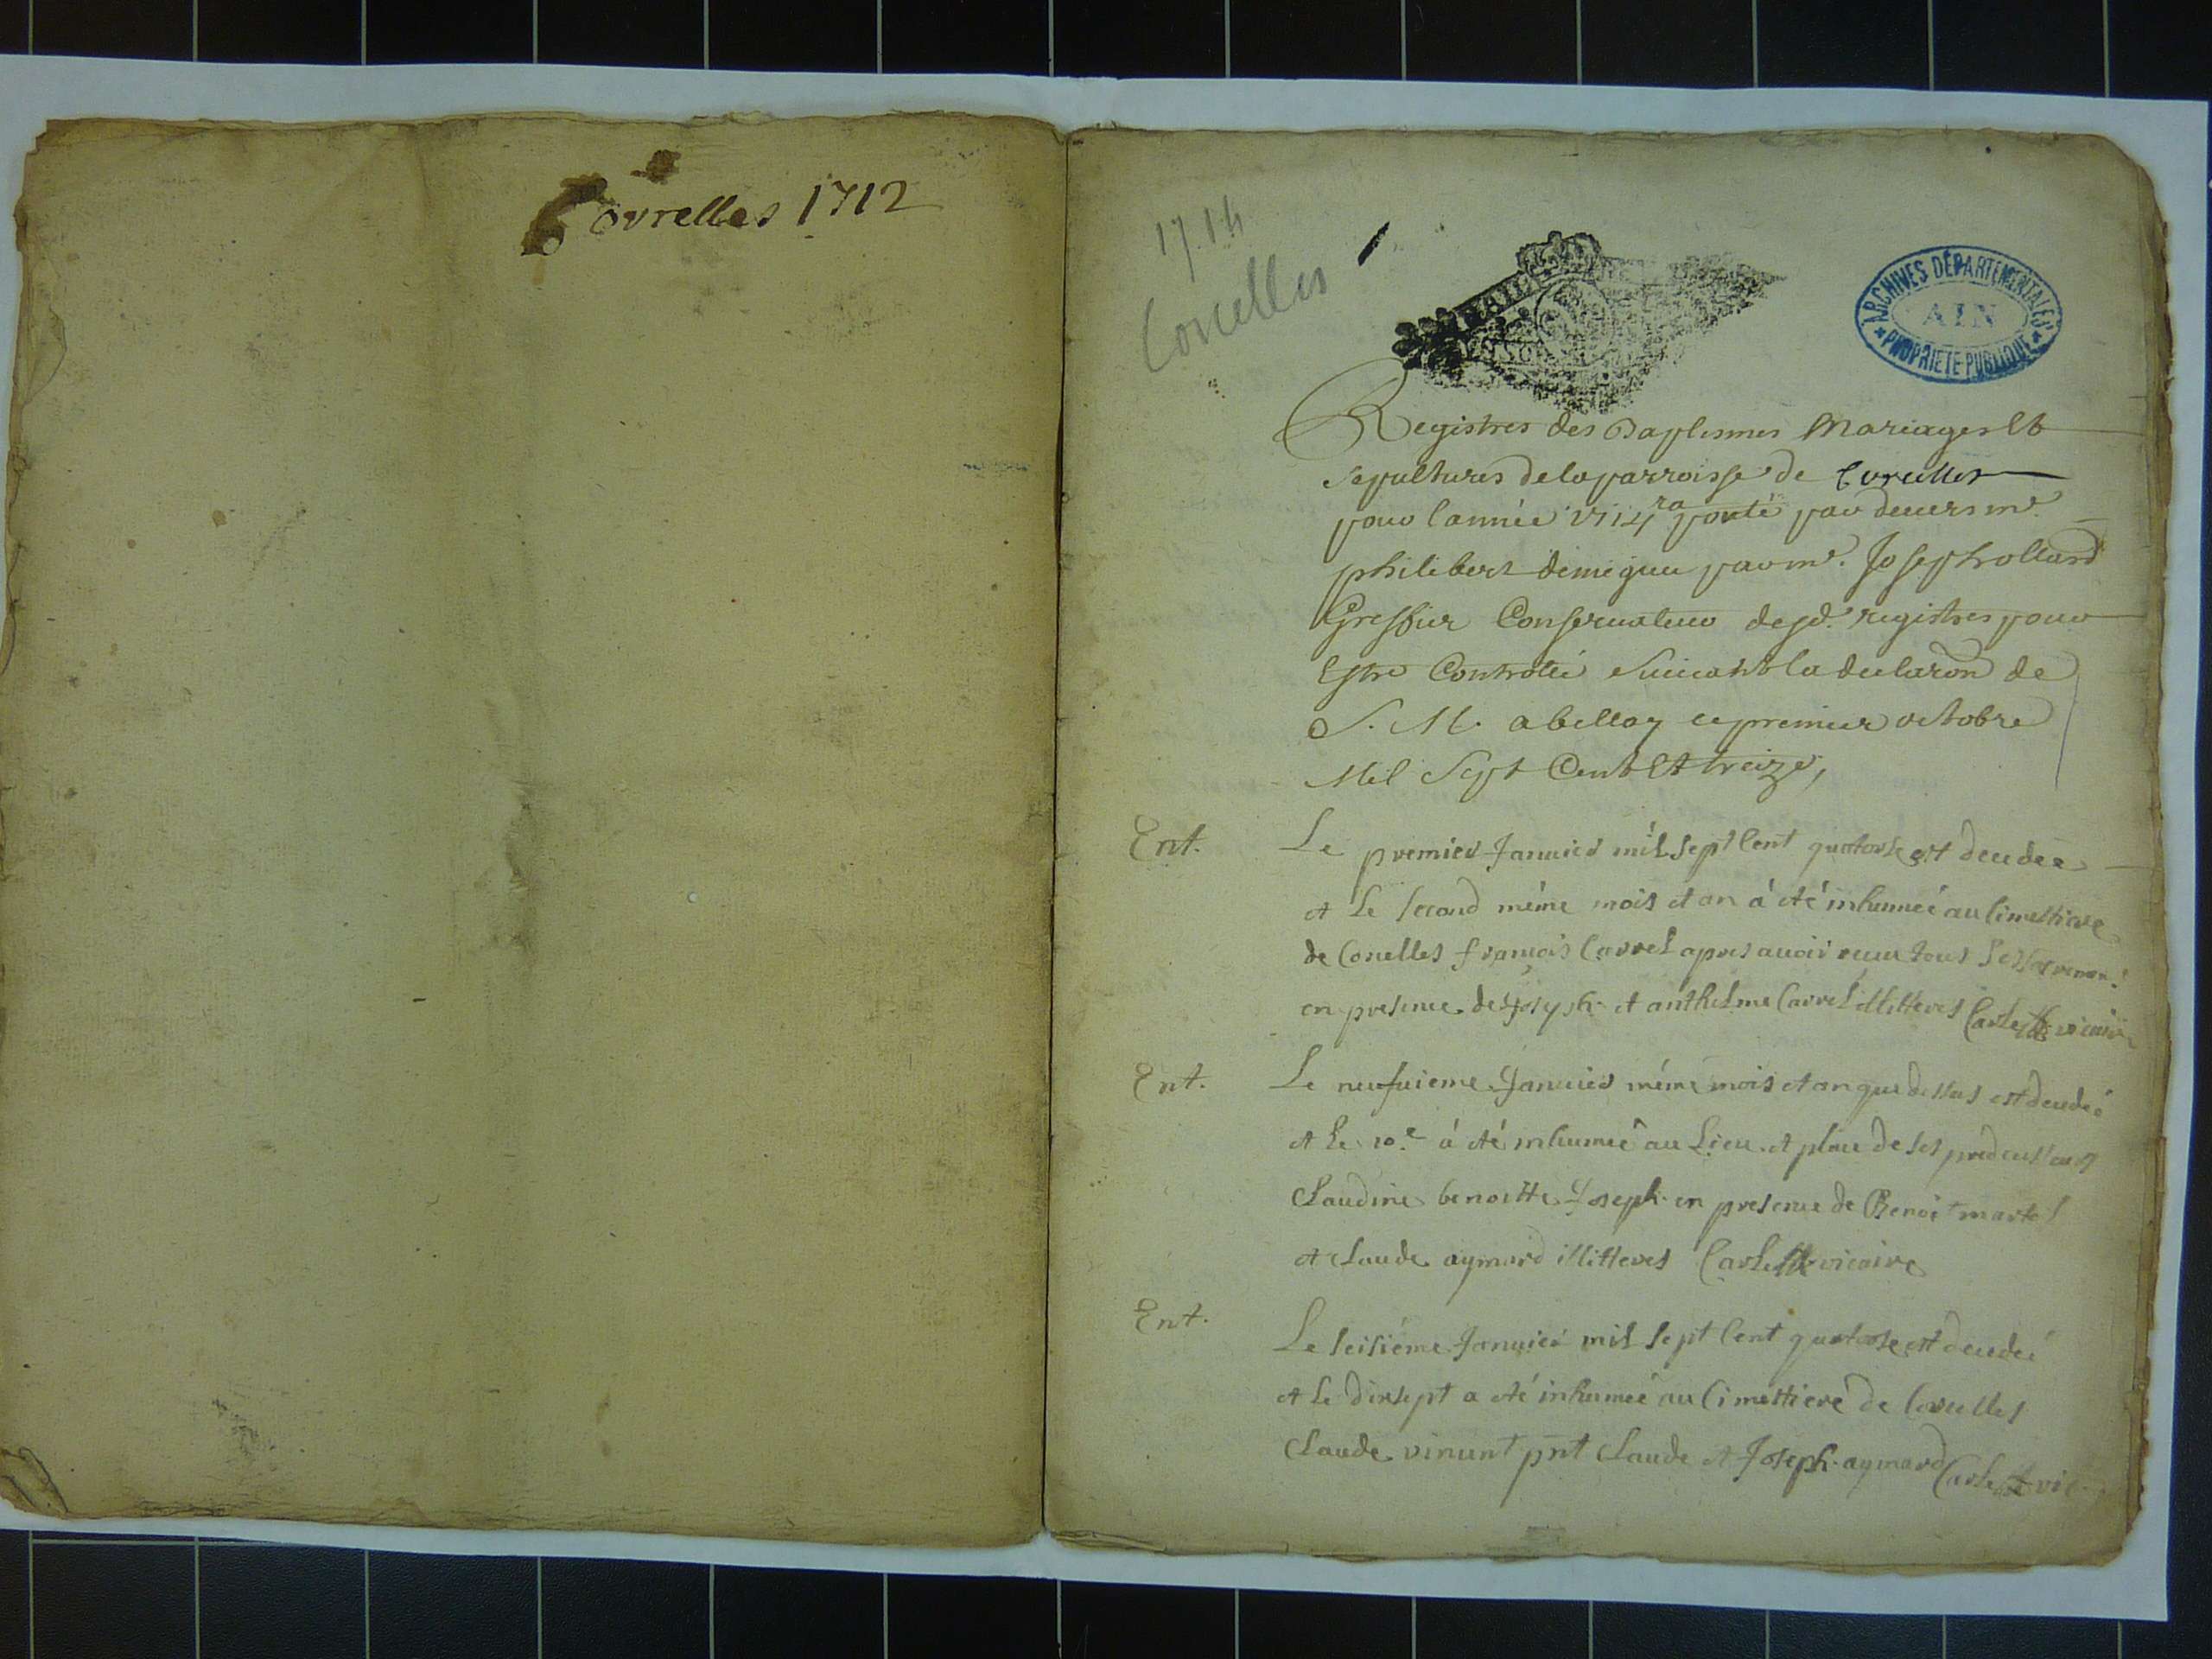 Corcelles 1712
1714
Corcelles
1
ARCHIVES DÉPARTEMENTALES
AIN
* PROPRIETE PUBLIQUE *
Registres des Baptesmes Mariages Et
sepultures de la parroisse de Corcelles
pour l'année 1714 par deuers mr.
philibert par mr. Joseph rollard
Greffier Conseruateur desd. registres pour
Estre Controllé Suiuant la declaraõn de
S. M. a belley ce premier octobre
Mil Sept Cent Et treize,
Ent.
Le premier Januier mil sept Cent quatorse est decedee
et Le second méme mois et an à été inhumeé au Cimettiere
de Corcelles françois Carrel apres auoir receu tous Les Sacremen.
en presence de Joseph et anthelme Carrel illitteres vicaire
Ent.
Le neufuieme Januier méme mois et an que dessus est decedeé
et Le 10.e à été inhumeé au Lieu et place de ses predecesseurs
Claudine benoitte Joseph en presence de Benoit martel
et Claude aymard illitteres vicaire
Ent.
Le seisiéme Januier mil sept Cent quatorse est decedeé
et Le dixsept a été inhumeé au Cimettiere de Corcelles
Claude vincent pnt Claude et Joseph aymard vic